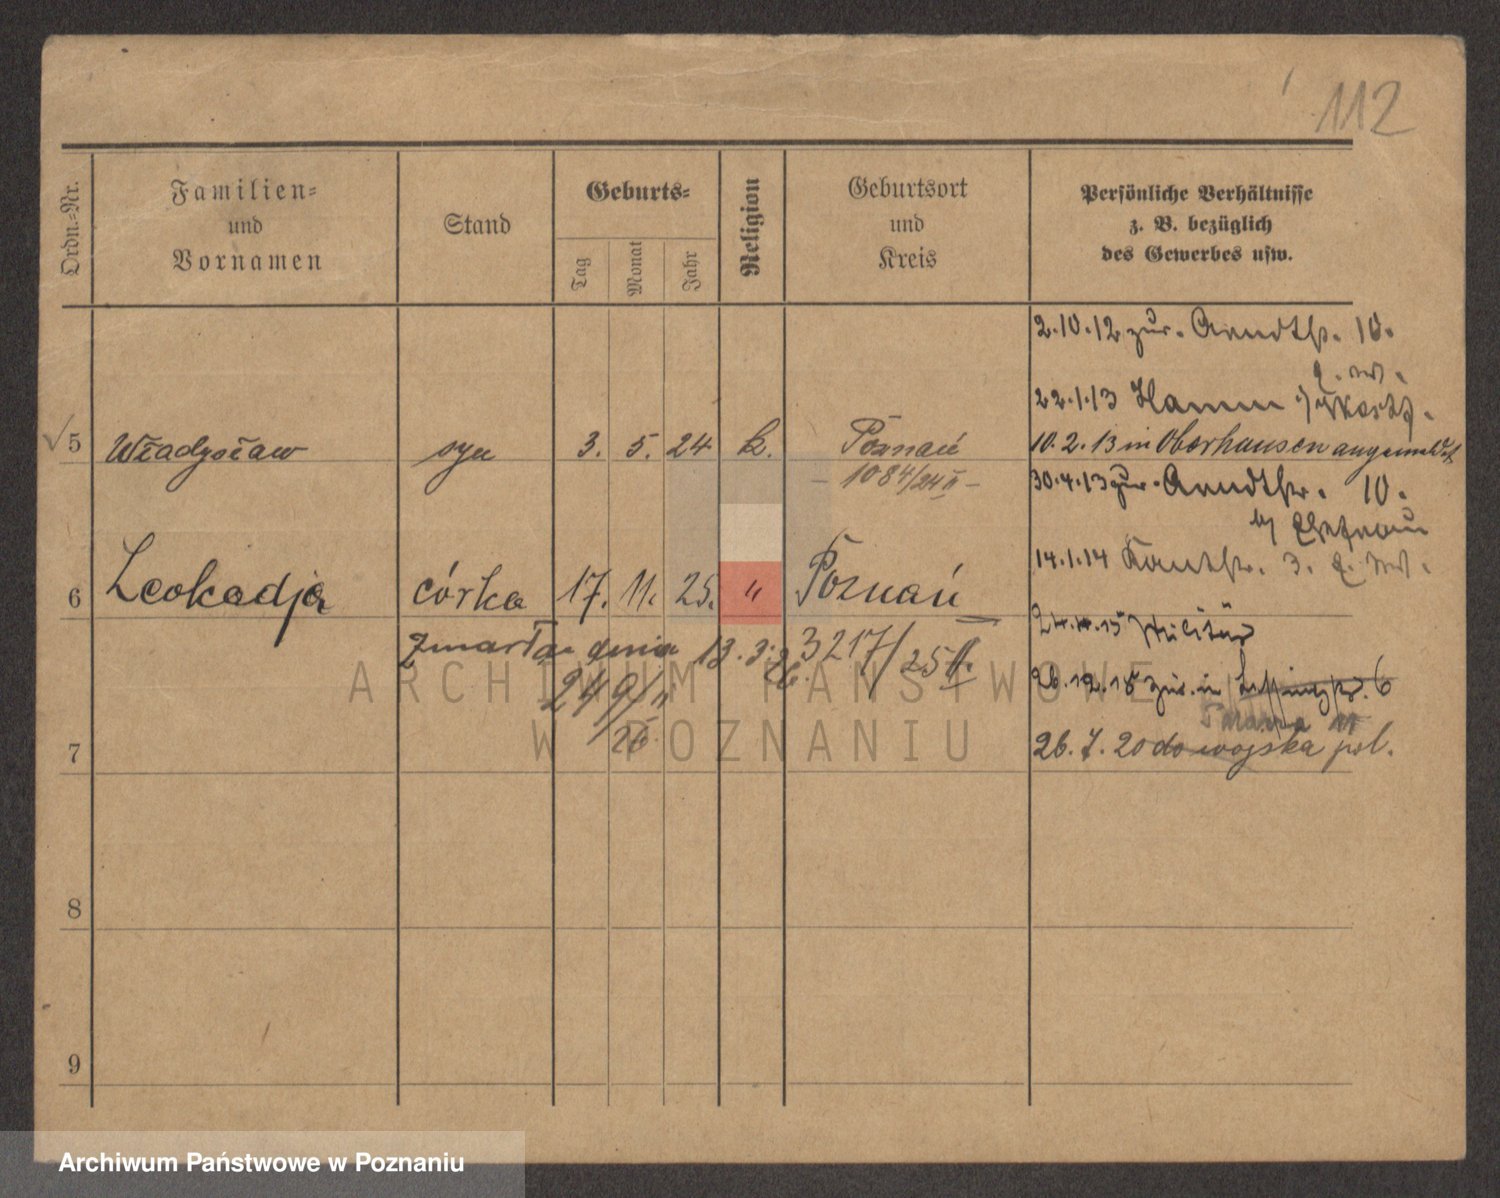 112
Ordn.-Nr.
Familien-
und
Vornamen
Stand
Geburts-
Tag
Monat
Jahr
Religion
Geburtsort
und
Kreis
Persönliche Verhältnisse
z. B. bezüglich
des Gewerbes usw.
2.10.12 zur. Arndtstr. 10.
22.1.13 Hamm
5 Władysław syn 3. 5. 24 k. Poznań
10.2.13 in Oberhausen angemeldet
- 1084/24 II -
30.4.13 zur. Arndtstr. 10.
14.1.14 Kantstr. 3.
6 Leokadja córka 17. 11. 25. " Poznań
Zmarła dnia 13.3.26. 3217/25 II.
15 Militär
249/II
26
26.12.18 zur. in 6
7
26.7.20 do wojska pol.
8
9
ARCHIWUM PAŃSTWOWE
W POZNANIU
Archiwum Państwowe w Poznaniu